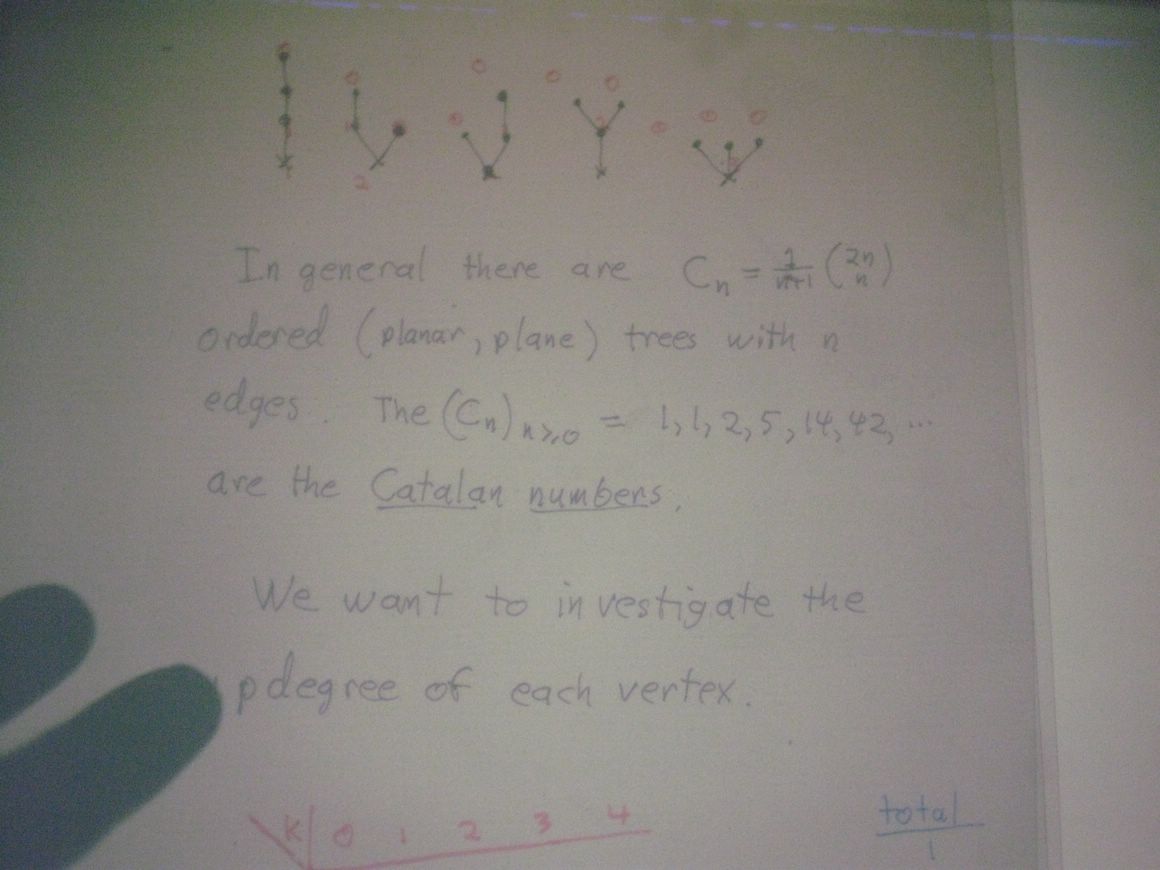 0 0 0 0 0 0 0 0 0
2
In general there are C_n = 1/(n+1) (2n n)
ordered (planar, plane) trees with n
edges. The (C_n)_{n≥0} = 1, 1, 2, 5, 14, 42, ...
are the Catalan numbers.
We want to investigate the
pdegree of each vertex.
k 0 1 2 3 4 total
1